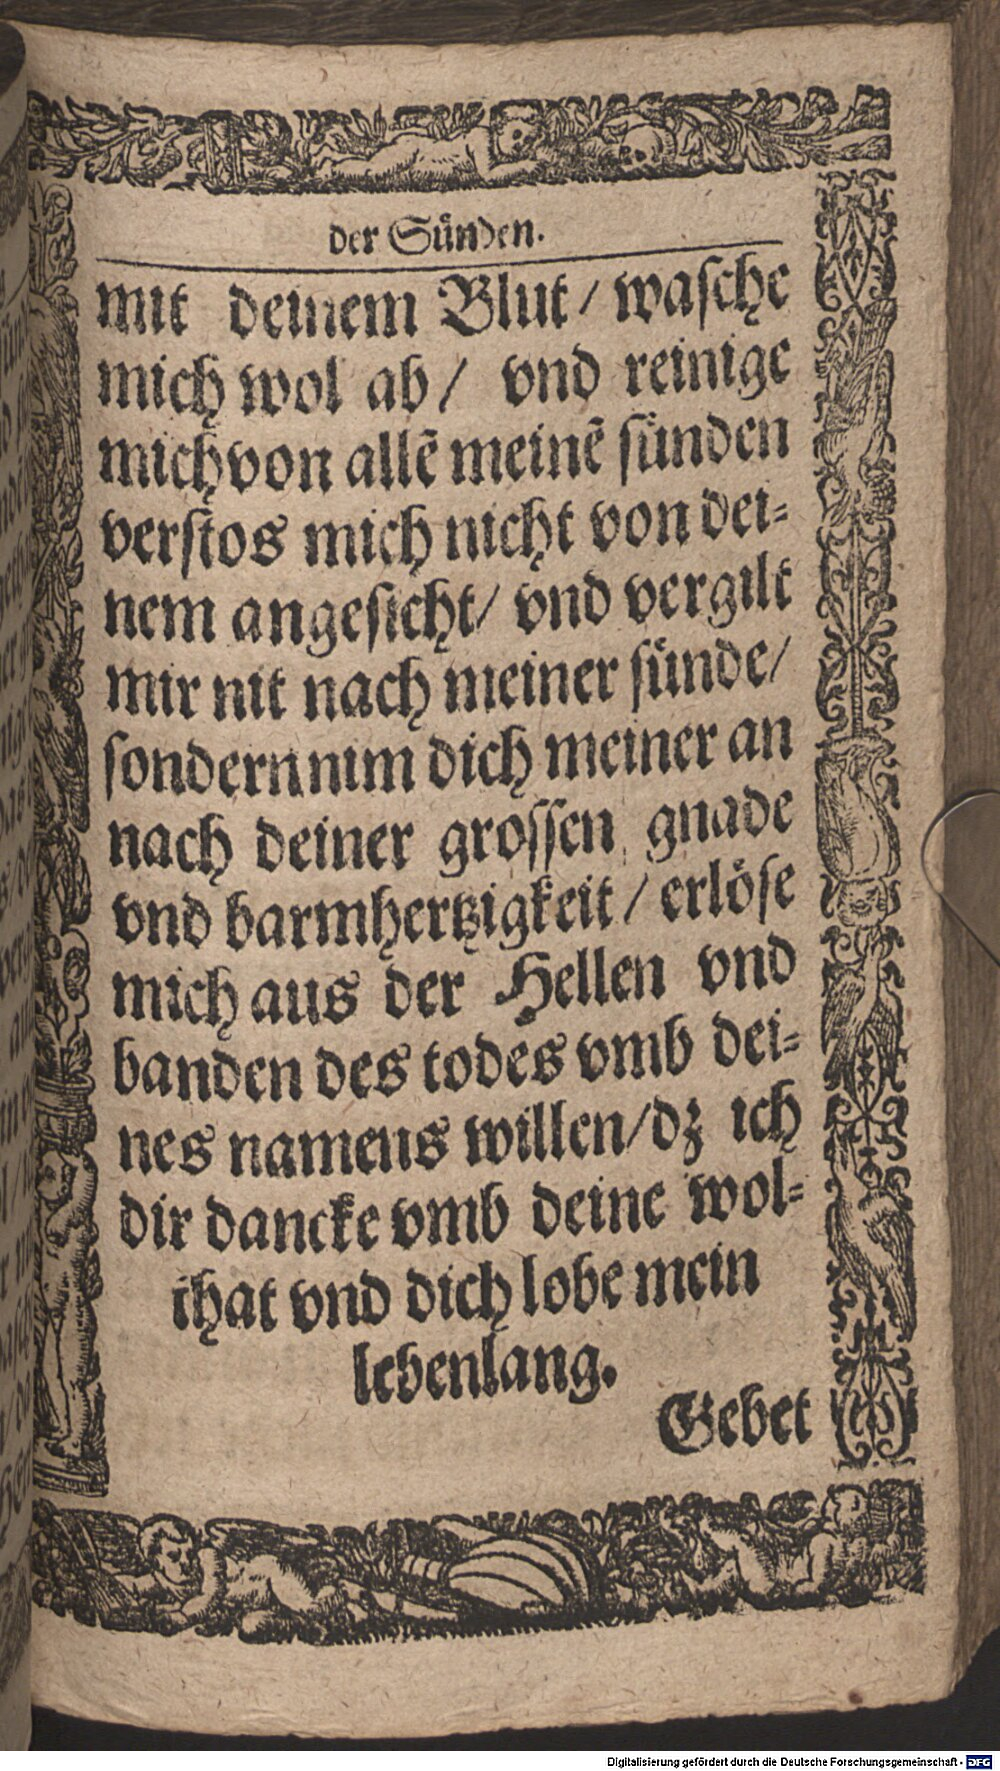 der Sünden.
mit deinem Blut / wasche
mich wol ab / vnd reinige
mich von allẽ meinẽ sünden
verstos mich nicht von dei-
nem angesicht / vnd vergilt
mir nit nach meiner sünde /
sondern nim dich meiner an
nach deiner grossen gnade
vnd barmhertzigkeit / erlöse
mich aus der Hellen vnd
banden des todes vmb dei-
nes namens willen / dz ich
dir dancke vmb deine wol-
that vnd dich lobe mein
lebenlang.
Gebet
Digitalisierung gefördert durch die Deutsche Forschungsgemeinschaft - DFG